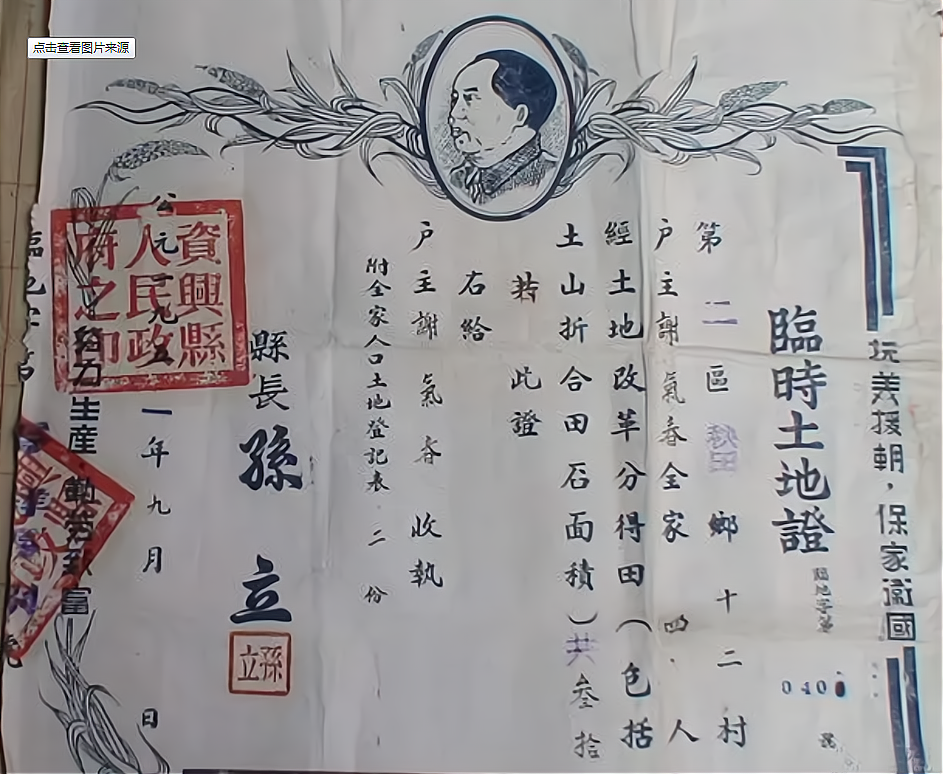 点击查看图片来源
抗美援朝，保家衛國
臨時土地證
臨地字第
040
號
第二區秋田鄉十二村
户主謝氣春全家四人
經土地改革分得田（包括
土山折合田石面積）共叁拾
此證
右給
户主謝氣春收執
附全家人口土地登記表二份
縣長孫立
孫立
公元一九五一年九月 日
資興縣人民政府之印
努力生產勤勞致富
臨地字第
號